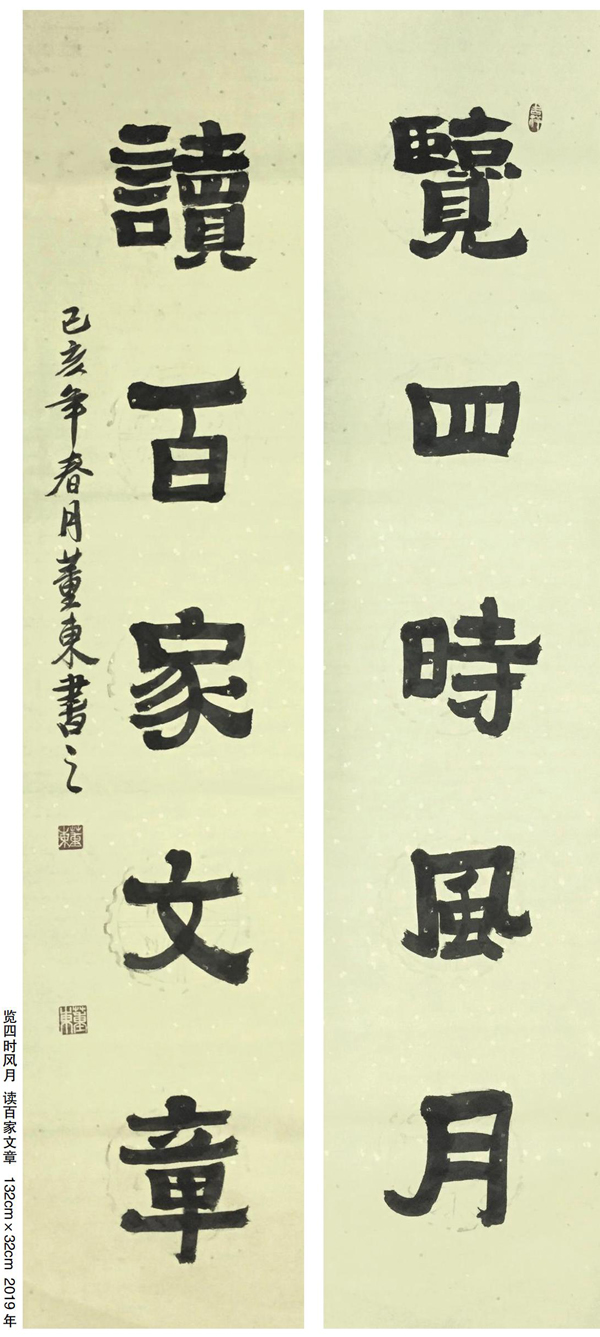 覽四時風月
讀百家文章
己亥年春月董東書之
董東
董東
览四时风月 读百家文章 132cm×32cm 2019年